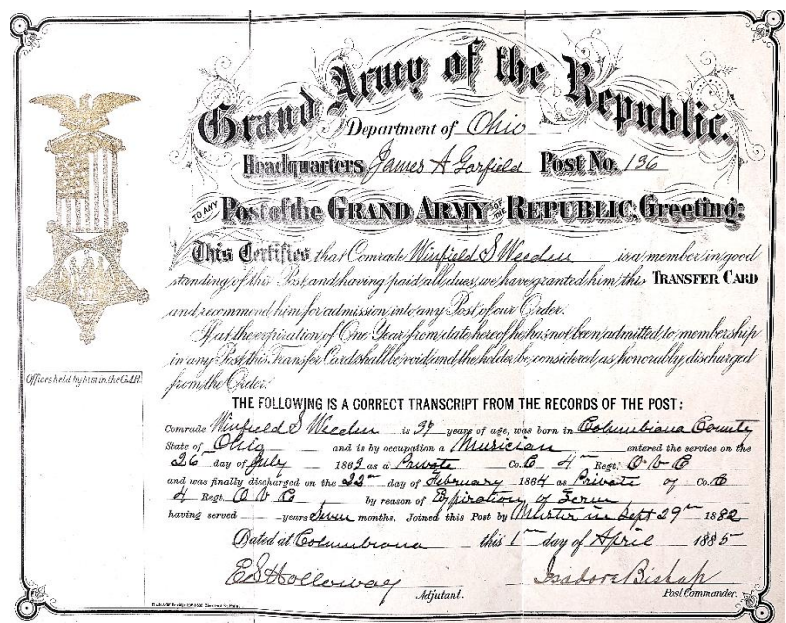 Grand Army of the Republic.
Department of Ohio
Headquarters James A Garfield Post No. 136
TO ANY Post of the GRAND ARMY OF THE REPUBLIC, Greeting:
This Certifies that Comrade Winfield S Weeden is a member in good
standing of this Post, and having paid all dues, we have granted him this TRANSFER CARD
and recommend him for admission into any Post of our Order.
If at the expiration of One Year from date hereof he has not been admitted to membership
in any Post, this Transfer Card shall be void and the holder be considered as honorably discharged
from the Order.
Offices held by him in the G.A.R.
THE FOLLOWING IS A CORRECT TRANSCRIPT FROM THE RECORDS OF THE POST:
Comrade Winfield S Weeden is 37 years of age, was born in Columbiana County
State of Ohio and is by occupation a Musician entered the service on the
26 day of July 1863 as a Private Co. C 4th Regt. O V C
and was finally discharged on the 22nd day of February 1864 as Private of Co. C
4 Regt. O V C by reason of Expiration of Term
having served years Seven months. Joined this Post by Muster in Sept 29th 1882
Dated at Columbiana this 1st day of April 1885
E S Holloway Isadore Bishop
Adjutant. Post Commander.